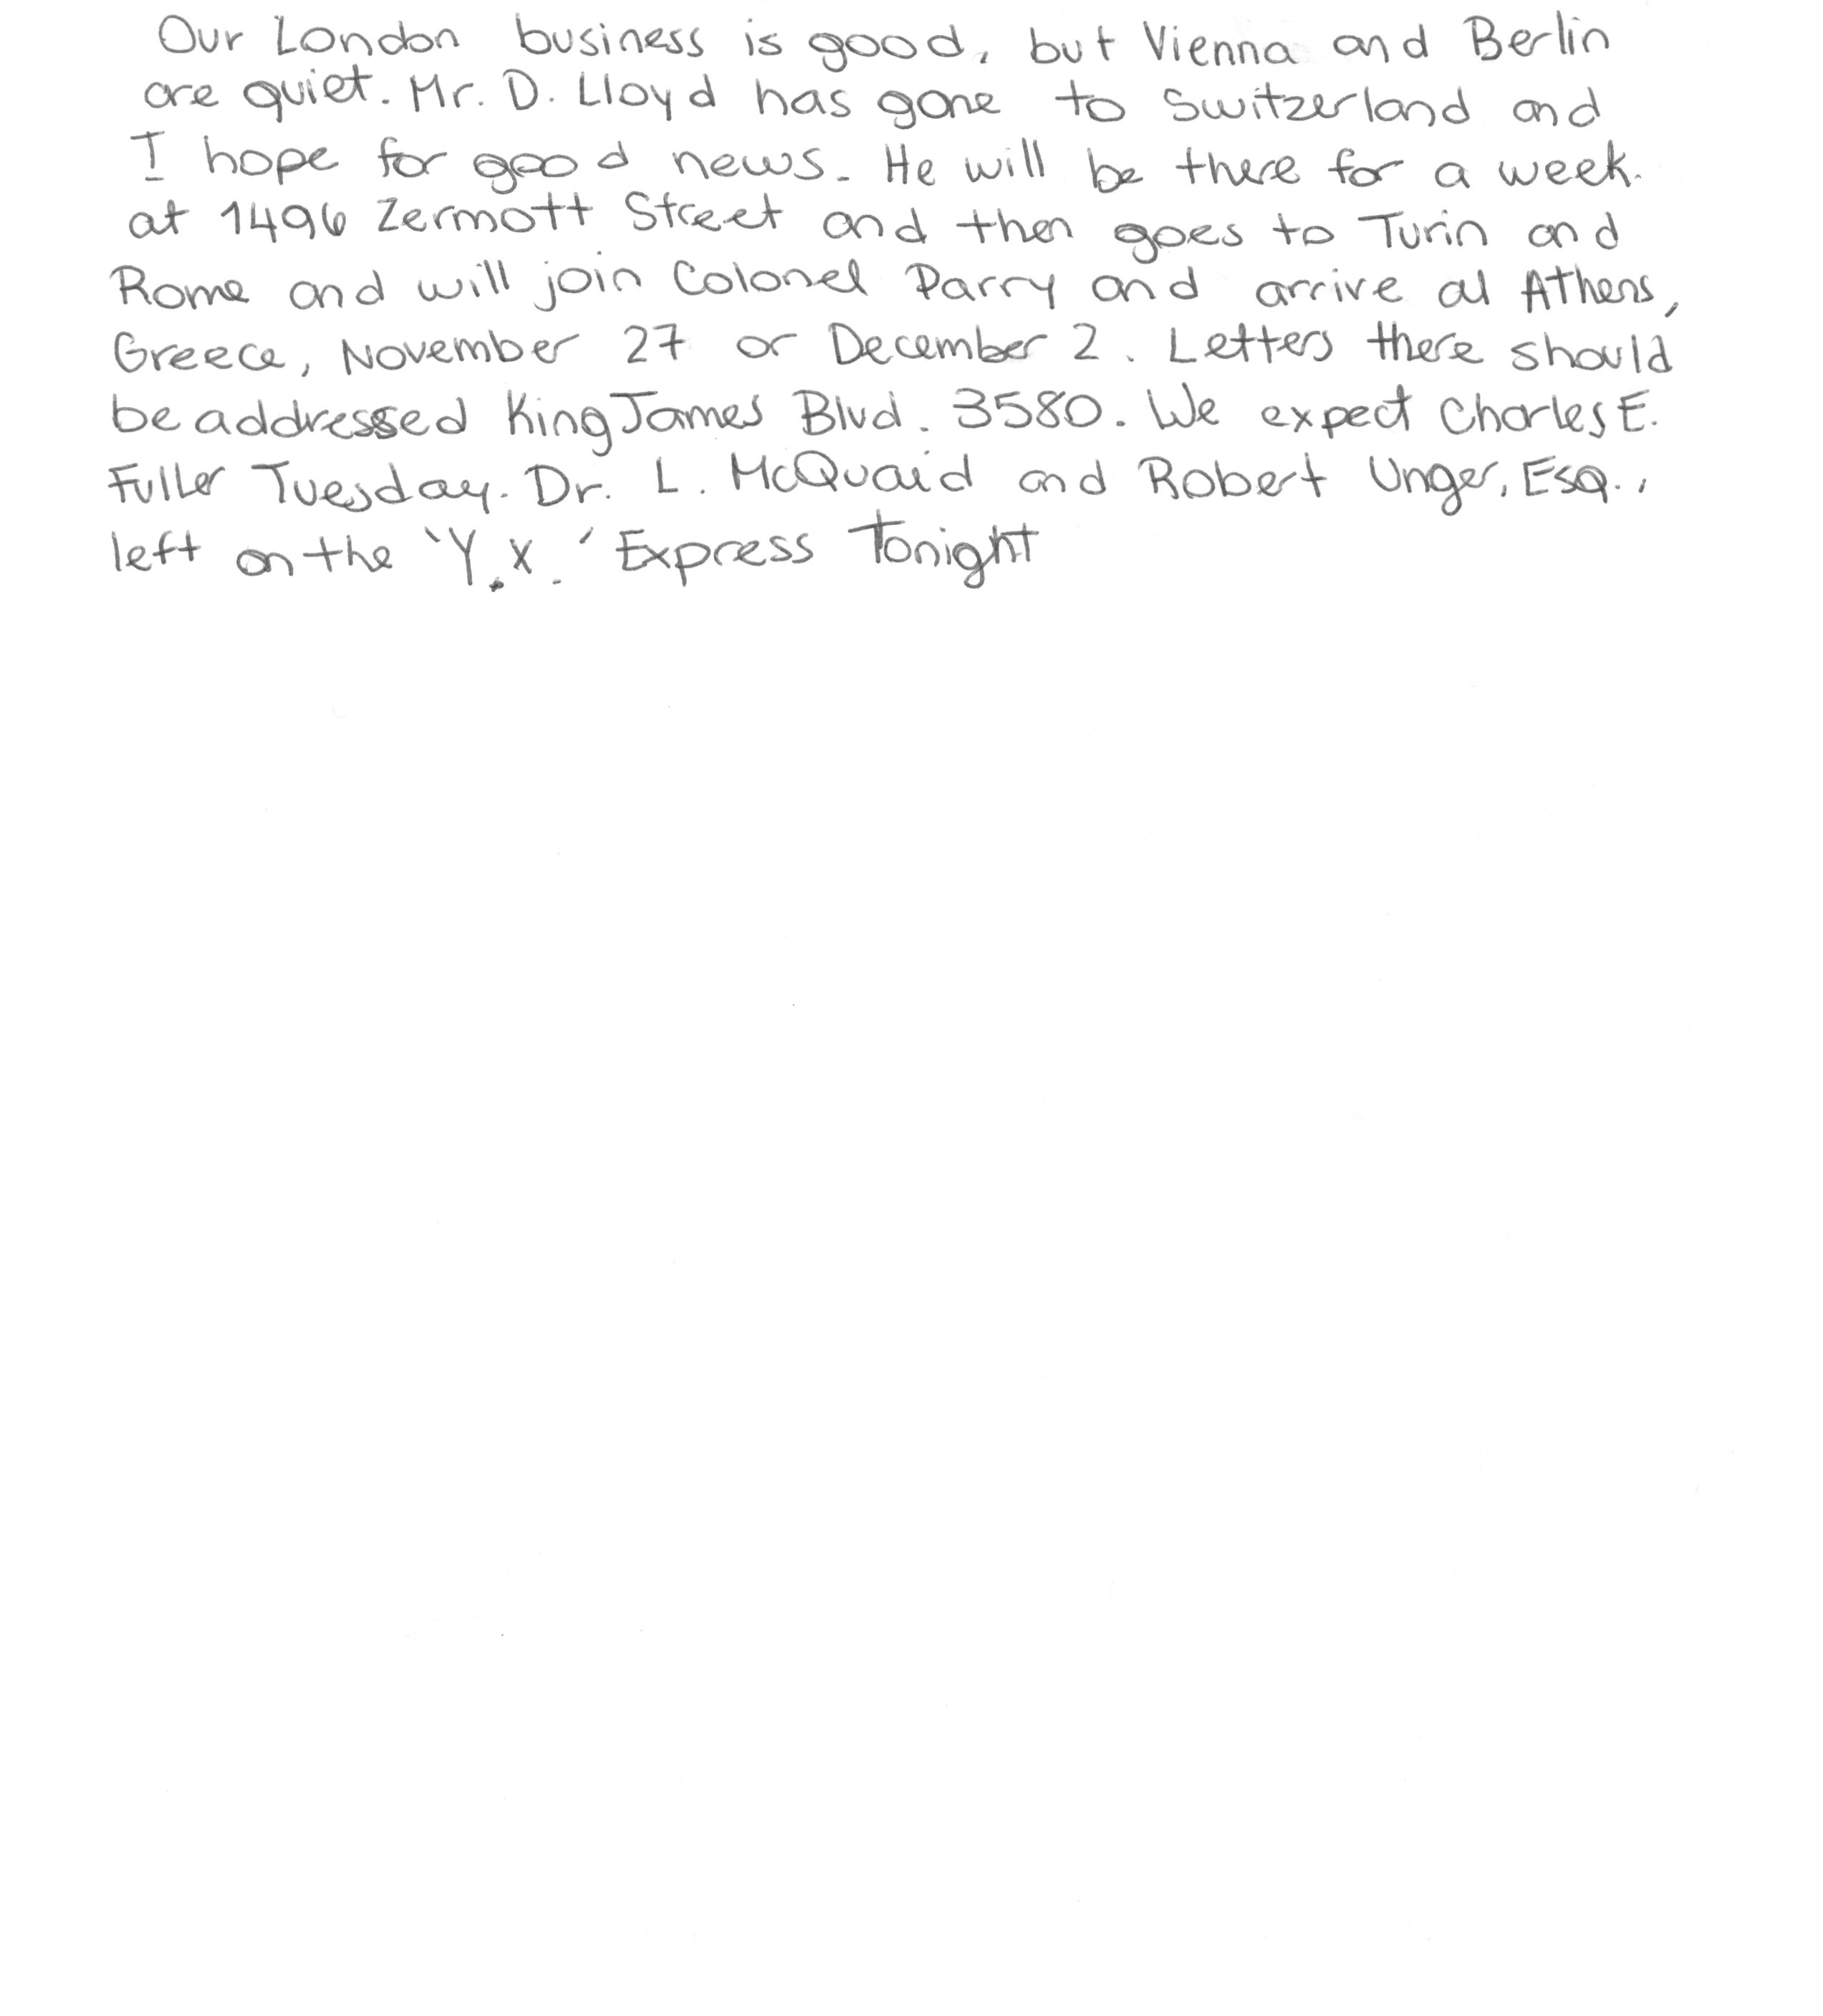 Our London business is good, but Vienna and Berlin
are quiet. Mr. D. Lloyd has gone to Switzerland and
I hope for good news. He will be there for a week.
at 1496 Zermott Street and then goes to Turin and
Rome and will join Colonel Parry and arrive al Athens,
Greece, November 27 or December 2. Letters there should
be addressed King James Blvd. 3580. We expect Charles E.
Fuller Tuesday. Dr. L. McQuaid and Robert Unger, Esq.,
left on the 'Y.X.' Express Tonight